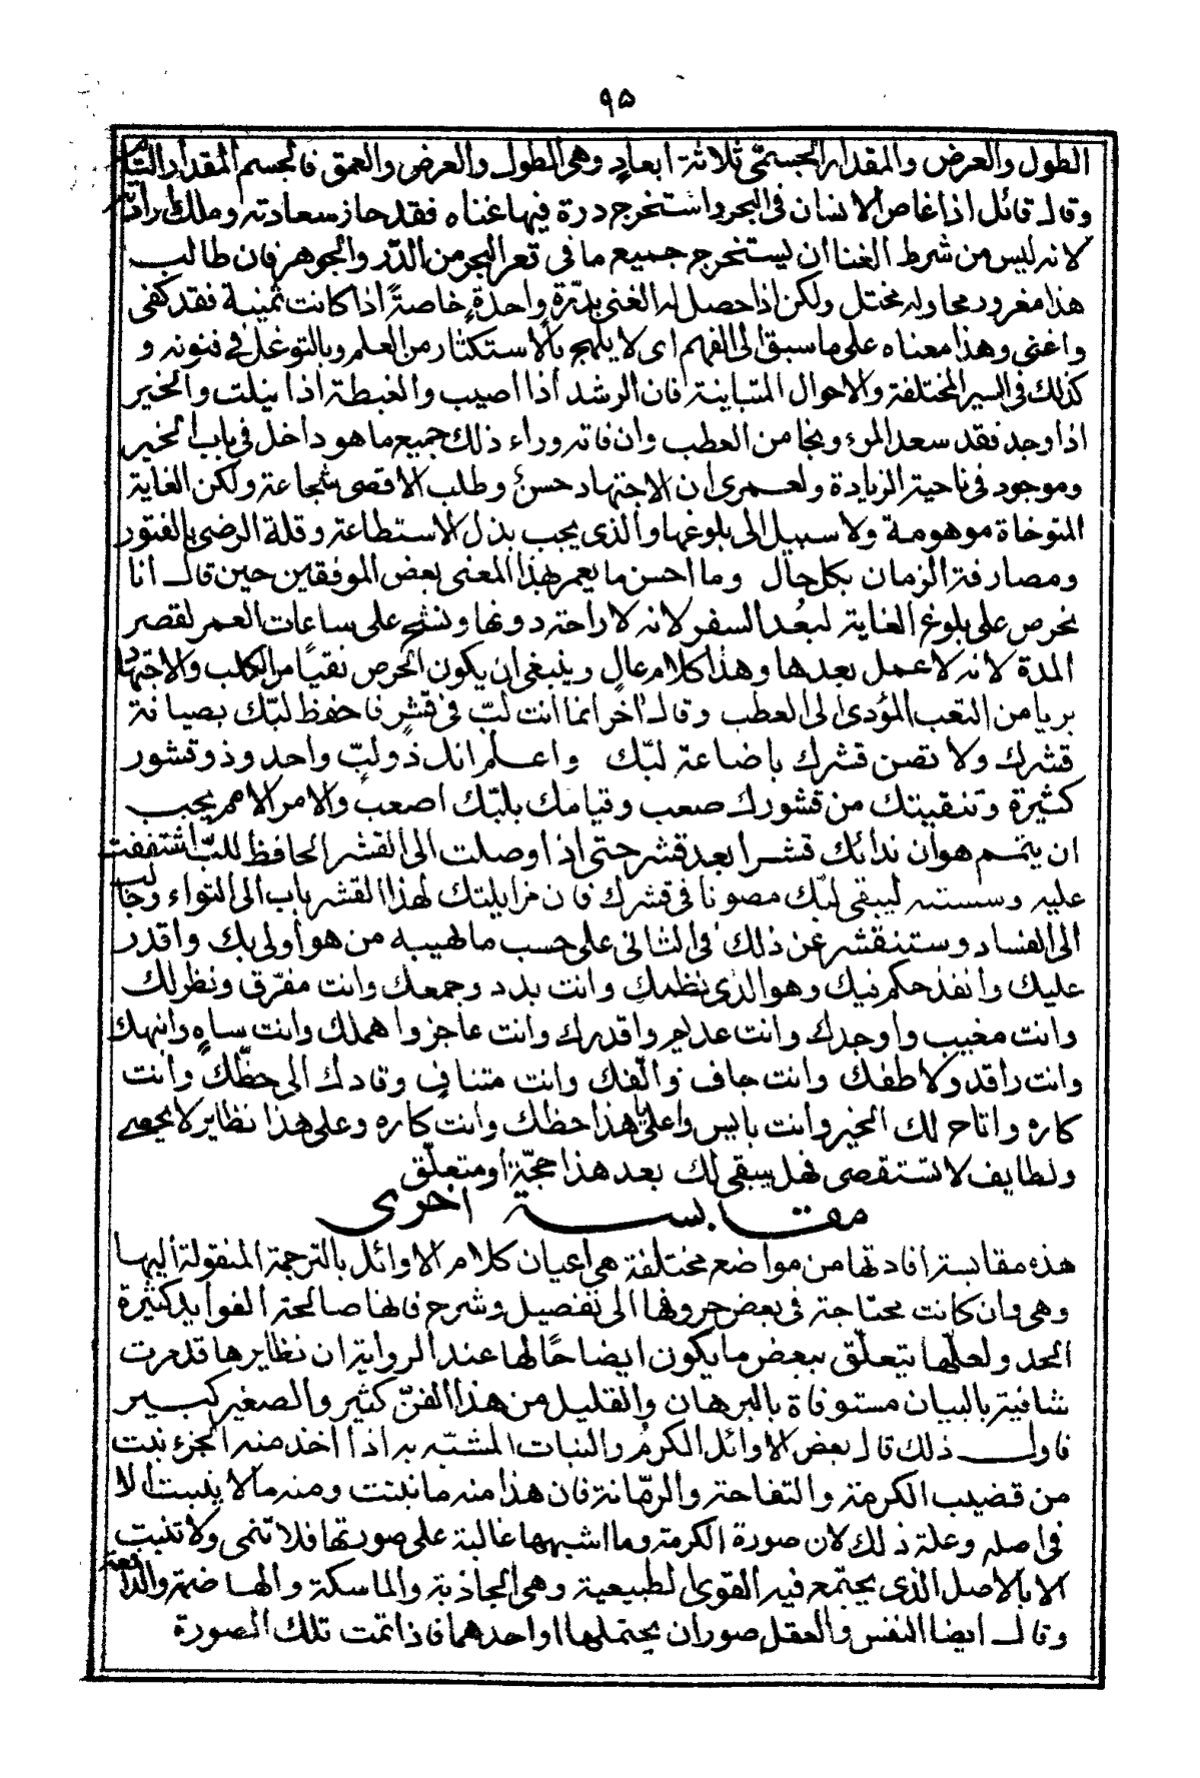 ٩٥
الطول والعرض والمقدار الجسمىّ ثلاثة ابعادٍ وهى الطول والعرض والعمق فالجسم المقدار التام
وقال قائل اذا غاص الانسان فى البحر واستخرج درة فيها غناه فقد حاز سعادته وملك ارادته
لانه ليس من شرط الغنا ان يستخرج جميع ما فى قعر البحر من الدّر والجوهر فان طالب
هذا مغرور ومحاوله مختل ولكن اذا حصل له الغنى بدرّةٍ واحدةٍ خاصةً اذا كانت ثمينة فقد كفى
واغنى وهذا معناه على ما سبق الى الفهم اى لا يلهج بالاستكثار من العلم وبالتوغل فى فنونه و
كذلك فى السير المختلفة والاحوال المتباينة فان الرشد اذا اصيب والغبطة اذا نيلت والخير
اذا وجد فقد سعد المرء ونجا من العطب وان فاته وراء ذلك جميع ما هو داخل فى باب الخير
وموجود فى ناحية الزيادة ولعمرى ان الاجتهاد حسنٌ وطلب الاقصى شجاعة ولكن الغاية
المتوخاة موهومة ولا سبيل الى بلوغها والذى يجب بذل الاستطاعة وقلة الرضى بالفتور
ومصارفة الزمان بكل حال وما احسن ما يعمر بهذا المعنى بعض الموفقين حين قال انا
نحرص على بلوغ الغاية لبُعد السفر لانه لا راحة دونها ونشح على ساعات العمر لقصر
المدة لانه لا عمل بعدها وهذا كلام عالٍ وينبغى ان يكون الحرص نقيًا من الكلب والاجتهاد
بريا من التعب المؤدى الى العطب وقال اخر انما انت لبّ فى قشرٍ فاحفظ لبّك بصيانة
قشرك ولا تصن قشرك باضاعة لبّك واعلم انك ذو لبّ واحد وذو قشور
كثيرة وتنقيتك من قشورك صعب وقيامك بلبّك اصعب والامر الامم يجب
ان يتمم هو ان تداتك قشرا بعد قشر حتى اذا وصلت الى القشر الحافظ للبّ اشتففت
عليه وسسته ليبقى لبّك مصونا فى قشرك فان مزايلتك لهذا القشر باب الى التواء وجالب
الى الفساد وستنقشر عن ذلك فى الثانى على حسب ما لهيبه من هو اولى بك واقدر
عليك وانفذ حكم فيك وهو الذى نظمك وانت بدد وجمعك وانت مفرّق ونظر لك
وانت مغيب واوجدك وانت عديم واقدرك وانت عاجز واهملك وانت ساهٍ وانبهك
وانت راقد ولاطفك وانت جاف والّفك وانت متنافٍ وقادك الى حظّك وانت
كاره واتاح لك الخير وانت بايس واعلى هذا حظك وانت كاره وعلى هذا نظاير لا يحصى
ولطايف لا تستقصى فهل يبقى لك بعد هذا حجّة او متعلّق
مقابسة اخرى
هذه مقابسة افادتها من مواضع مختلفة هى اعيان كلام الاوائل بالترجمة المنقولة اليها
وهى وان كانت محتاجة فى بعض حروفها الى تفصيل وشرح فانها صالحة الفوايد كثيرة
الحد ولعلها يتعلّق ببعض ما يكون ايضاحًا لها عند الرواية ان نظايرها قد مرت
شافية بالبيان مستوفاة بالبرهان والقليل من هذا الفنّ كثير والصغير كبير
فاول ذلك قال بعض الاوائل الكرم والنبات المشبّه به اذا اخذ منه الجزء نبت
من قضيب الكرمة والتفاحة والرمّانة فان هذا منه ما نبتت ومنه ما لا ينبت الا
فى اصله وعلة ذلك لان صورة الكرمة وما اشبهها غالبة على صورتها فلا تنمى ولا تنبت
الا بالاصل الذى يجتمع فيه القوى الطبيعية وهى الجاذبة والماسكة والهاضمة والدافعة
وقال ايضا النفس والعقل صوران يحتملها اواحدهما فاذا تمت تلك الصورة